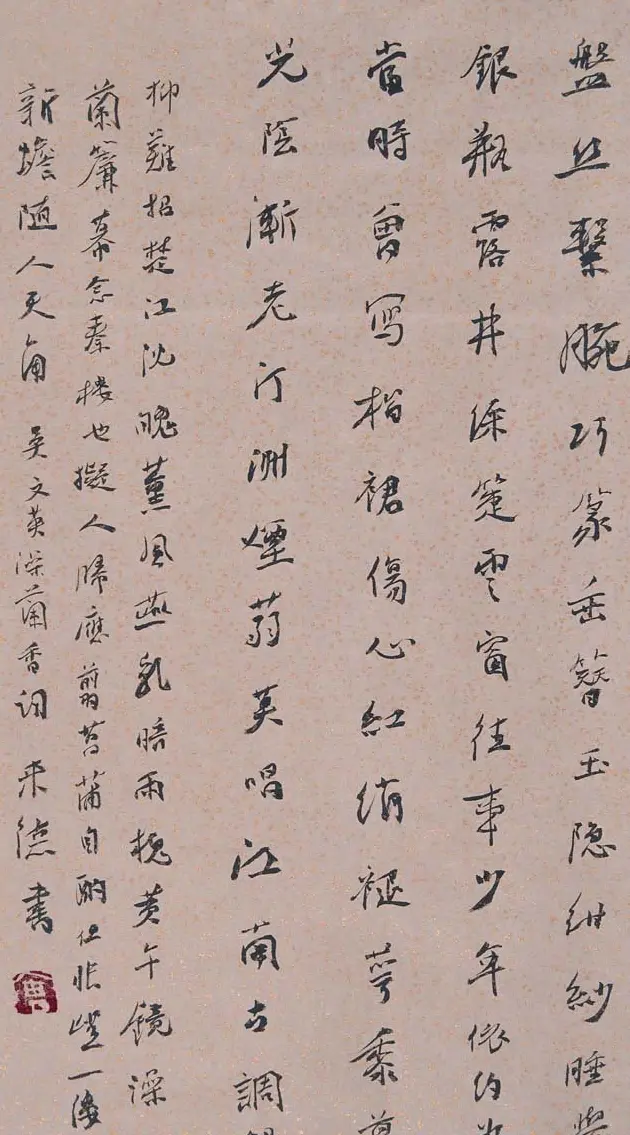 盤丝繫腕巧篆垂簪玉隐紺紗睡覺
銀瓶露井綵箑雲窗往事少年依约
當時曾寫榴裙傷心紅綃褪萼黍夢
光陰漸老汀洲煙蒻莫唱江南古調
抑難招楚江沈魄薰風燕乳暗雨槐黄午鏡澡
蘭簾幕念秦樓也擬人歸應翦菖蒲自酌但悵望一縷
新蟾随人天角 吴文英澡蘭香词 来德書